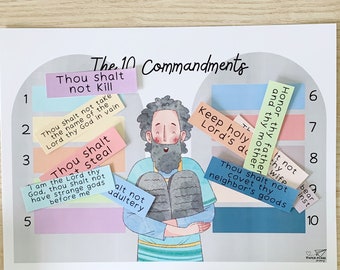 The 10 Commandments
1
2
3
4
5
6
7
10
Thou shalt
not Kill
Thou shalt not take
the name of the
Lord thy God in vain
Thou shalt
not steal
I am the Lord thy
God, thou shalt not
have strange gods
before me
shalt not
adultery
Honor thy father
and thy mother
Keep holy
Lord's
shalt not
thy wife
bear
Thou shalt not
covet thy
neighbor's goods